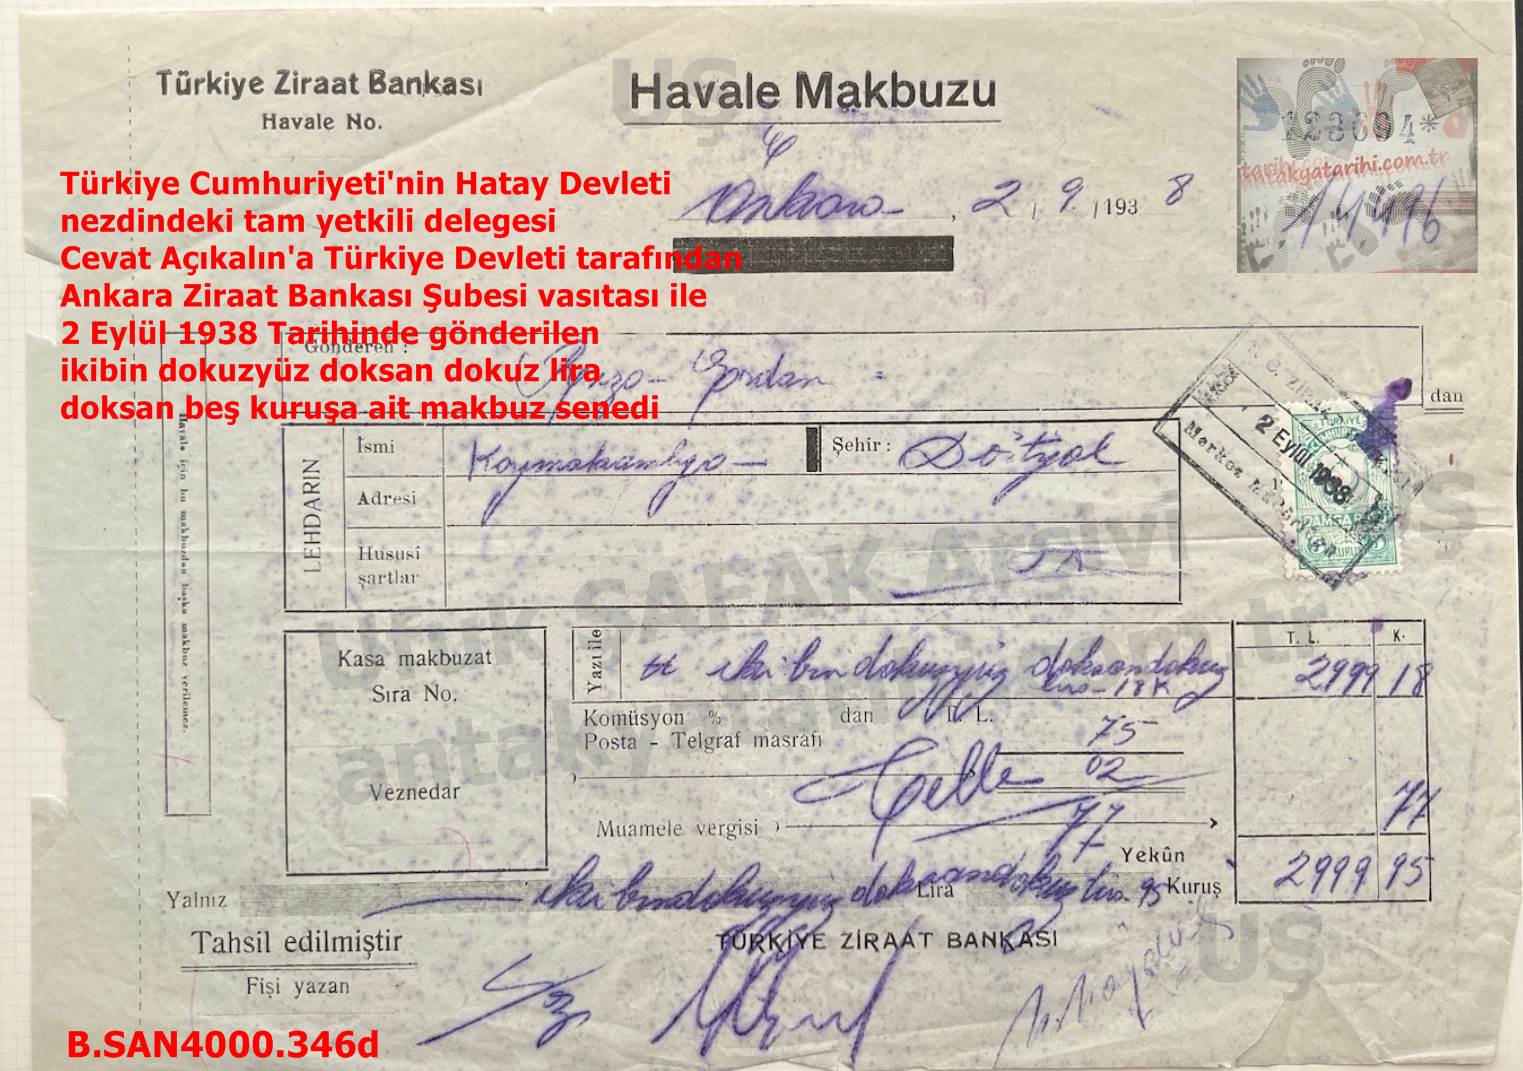 Türkiye Ziraat Bankası
Havale No.
Havale Makbuzu
123604*
tarihi
antakyatarihi.com.tr
14496
Ankara, 2 / 9 / 1938
Türkiye Cumhuriyeti'nin Hatay Devleti
nezdindeki tam yetkili delegesi
Cevat Açıkalın'a Türkiye Devleti tarafından
Ankara Ziraat Bankası Şubesi vasıtası ile
2 Eylül 1938 Tarihinde gönderilen
ikibin dokuzyüz doksan dokuz lira
doksan beş kuruşa ait makbuz senedi
Gönderen :
dan
Havale için bu makbuzdan başka makbuz verilemez.
LEHDARIN
İsmi Kaymakamlığa
Şehir : Dörtyol
Adresi
Hususî
şartlar
T. C. ZİRAAT
2 Eylül 1938
Merkez
TÜRKİYE
DAMGA
KURUŞ
UFUK ŞAFAK Arşivi
UŞ
Kasa makbuzat
Sıra No.
Veznedar
Yazı ile
iki bin dokuzyüz doksandokuz
lira 18 K
T. L. K.
2999 18
Komüsyon % dan T. L.
75
Posta - Telgraf masrafı
02
Muamele vergisi
77
77
Yekûn
2999 95
Yalnız iki bindokuzyüz doksandokuz Lira 95 Kuruş
Tahsil edilmiştir
TÜRKİYE ZİRAAT BANKASI
Fişi yazan
UŞ
B.SAN4000.346d